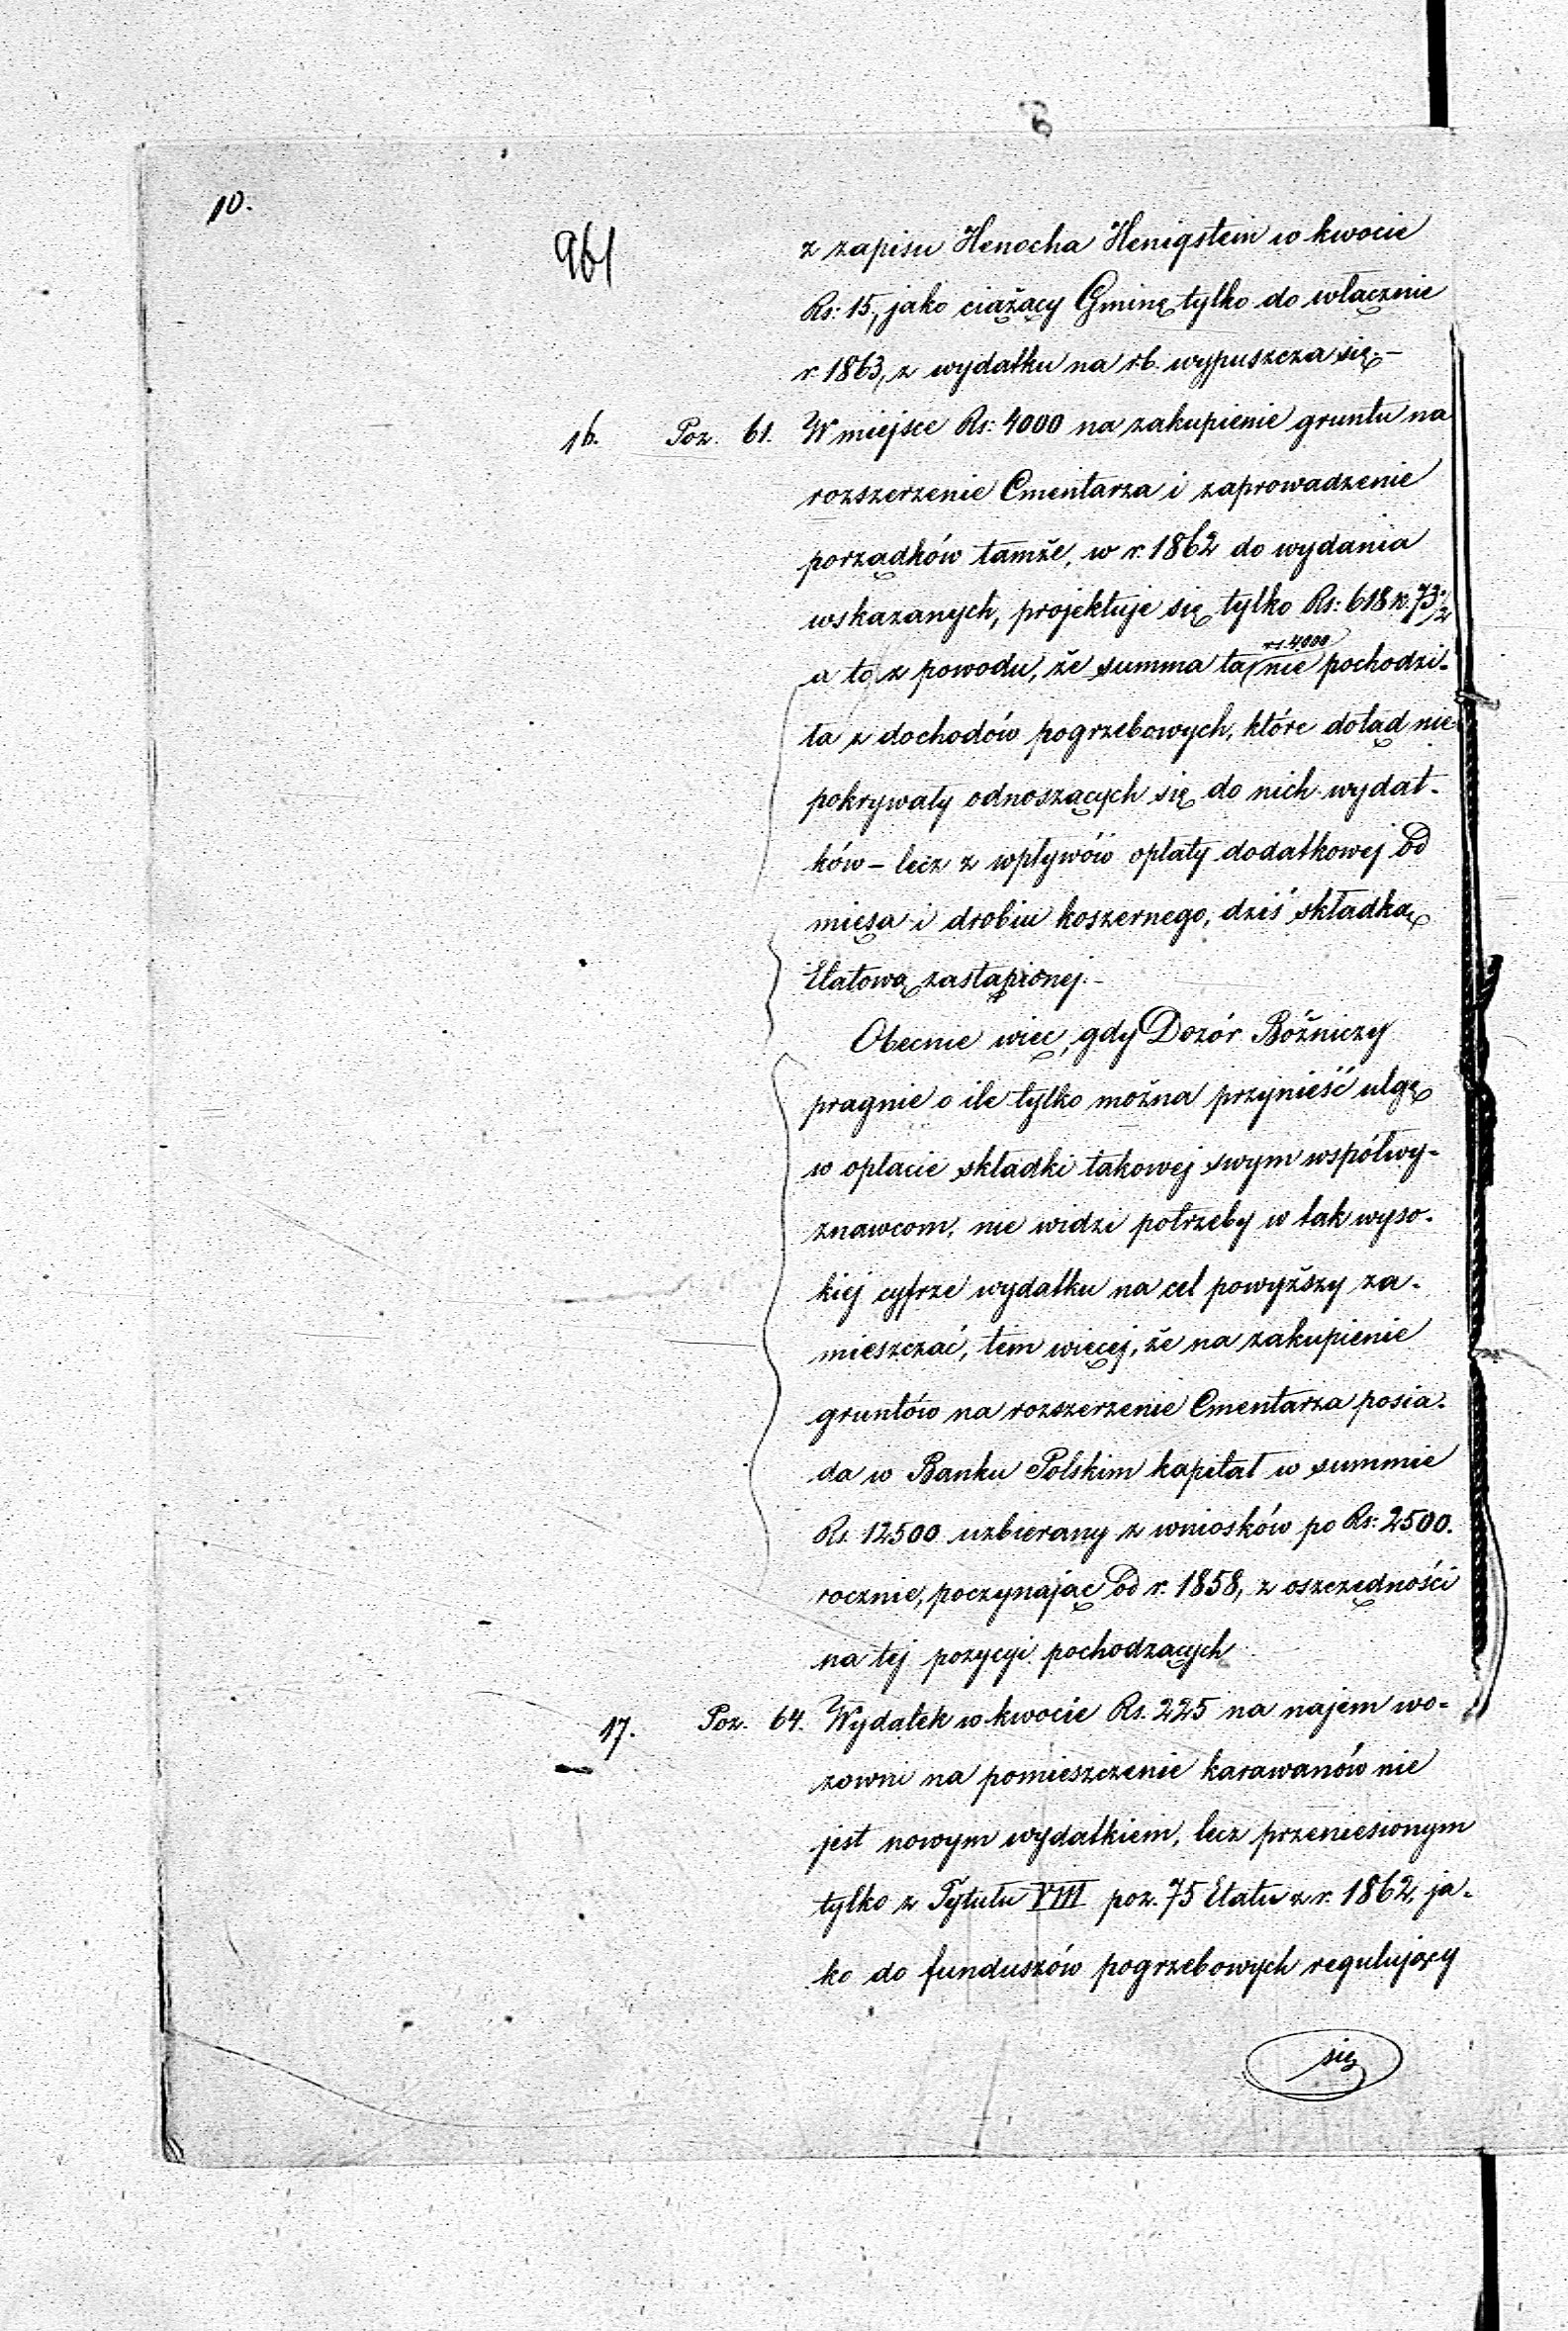 10.
961
z zapisu Henocha Henigstein w kwocie
Rs: 15, jako ciążący Gminę tylko do włącznie
r. 1863, z wydatku na r.b. wypuszcza się.–
16. Poz. 61. W miejsce Rs: 4000 na zakupienie gruntu na
rozszerzenie Cmentarza i zaprowadzenie
porządków tamże, w r. 1862 do wydania
wskazanych, projektuje się tylko Rs: 618 k. 73½
rs. 4000
a to z powodu, że summa ta nie pochodzi-
ła z dochodów pogrzebowych, które dotąd nie
pokrywały odnoszących się do nich wydat-
ków – lecz z wpływów opłaty dodatkowej od
mięsa i drobiu koszernego, dziś składką
Etatową zastąpionej.–
Obecnie więc, gdy Dozór Bóżniczy
pragnie o ile tylko można przynieść ulgę
w opłacie składki takowej swym współwy-
znawcom, nie widzi potrzeby w tak wyso-
kiej cyfrze wydatku na cel powyższy za-
mieszczać, tem więcej, że na zakupienie
gruntów na rozszerzenie Cmentarza posia-
da w Banku Polskim kapitał w summie
Rs. 12500 uzbierany z wniosków po Rs: 2500.
rocznie, poczynając od r. 1858, z oszczędności
na tej pozycyi pochodzących
17. Poz. 64. Wydatek w kwocie Rs. 225 na najem wo-
zowni na pomieszczenie karawanów nie
jest nowym wydatkiem, lecz przeniesionym
tylko z Tytułu VIII poz. 75 Etatu z r. 1862, ja-
ko do funduszów pogrzebowych regulujący
się